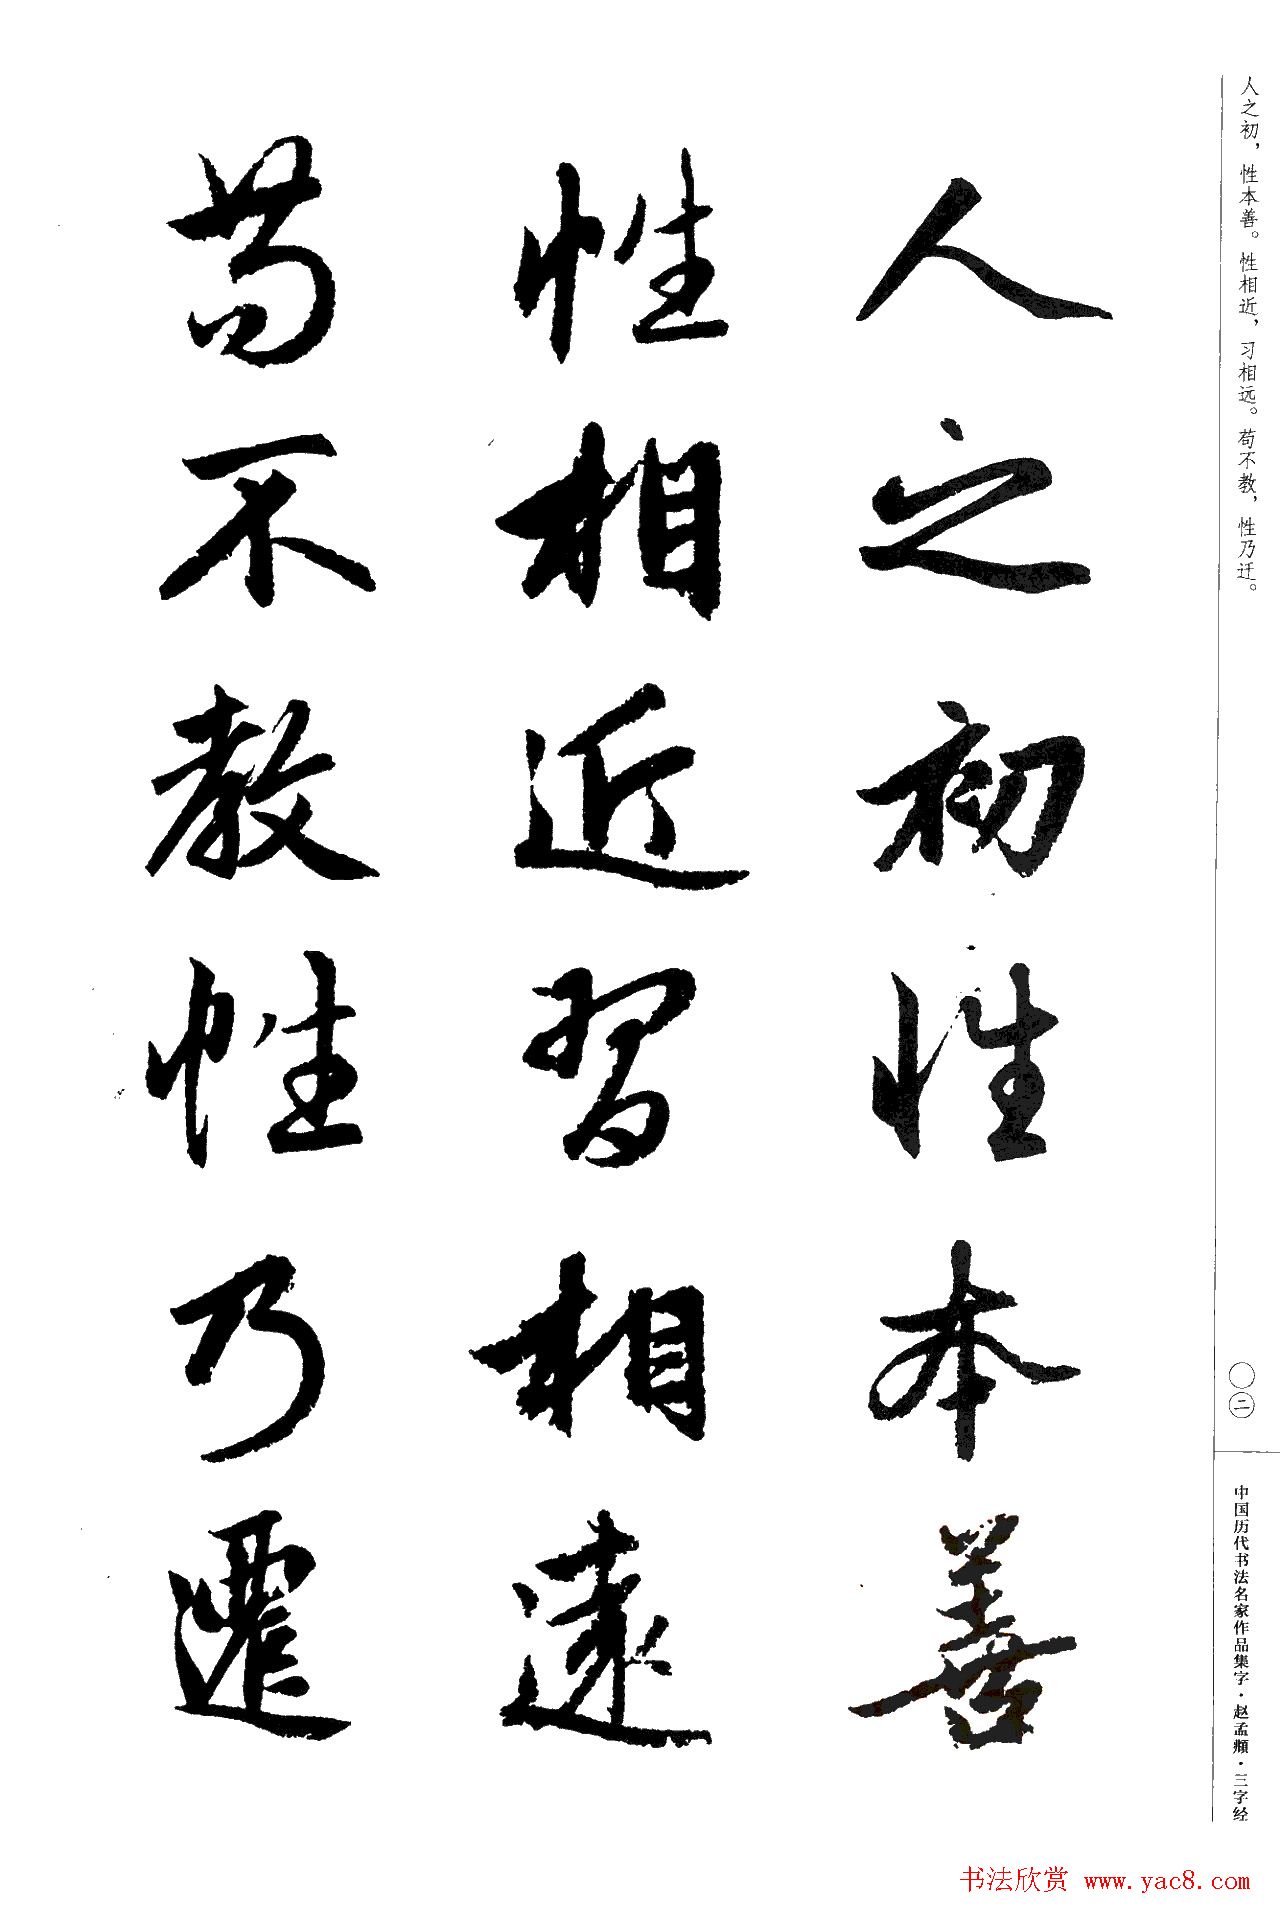 人之初，性本善。性相近，习相远。苟不教，性乃迁。
人之初性本善
性相近習相遠
苟不教性乃遷
〇二
中国历代书法名家作品集字·赵孟頫·三字经
书法欣赏 www.yac8.com